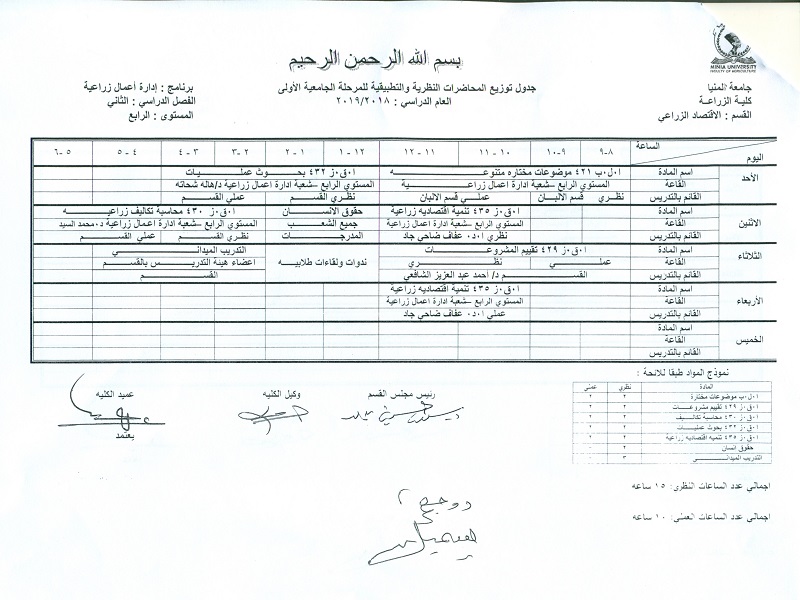 بسم الله الرحمن الرحيم
MINIA UNIVERSITY
FACULTY OF AGRICULTURE
جامعة المنيا
كلية الزراعة
القسم : الاقتصاد الزراعي
جدول توزيع المحاضرات النظرية والتطبيقية للمرحلة الجامعية الأولى
العام الدراسي : ٢٠١٩/٢٠١٨
برنامج : إدارة أعمال زراعية
الفصل الدراسي : الثاني
المستوى : الرابع
الساعة ٩-٨ ١٠-٩ ١١-١٠ ١٢-١١ ١-١٢ ٢-١ ٣-٢ ٤-٣ ٥-٤ ٦-٥
اليوم
الأحد
اسم المادة ا.ل.ب ٤٢١ موضوعات مختاره متنوعه ا.ق.ز ٤٣٢ بحوث عمليات
القاعة المستوي الرابع –شعبة ادارة اعمال زراعية المستوي الرابع –شعبة ادارة اعمال زراعية د/هاله شحاته
القائم بالتدريس نظري قسم الالبان عملي قسم الالبان نظري القسم عملي القسم
الاثنين
اسم المادة ا.ق.ز ٤٣٥ تنمية اقتصاديه زراعية حقوق الانسان ا.ق.ز ٤٣٠ محاسبة تكاليف زراعيه
القاعة المستوي الرابع –شعبة ادارة اعمال زراعية جميع الشعب المستوي الرابع –شعبة ادارة اعمال زراعية د.محمد السيد
القائم بالتدريس نظري ا.د. عفاف ضاحي جاد المدرجات نظري القسم عملي القسم
الثلاثاء
اسم المادة ا.ق.ز ٤٢٩ تقييم المشروعات ندوات ولقاءات طلابيه التدريب الميداني
القاعة عملي نظري اعضاء هيئة التدريس بالقسم
القائم بالتدريس القسم د/ احمد عبد العزيز الشافعي القسم
الأربعاء
اسم المادة ا.ق.ز ٤٣٥ تنمية اقتصاديه زراعية
القاعة المستوي الرابع –شعبة ادارة اعمال زراعية
القائم بالتدريس عملي ا.د. عفاف ضاحي جاد
الخميس
اسم المادة
القاعة
القائم بالتدريس
نموذج المواد طبقا للائحة :
المادة نظري عملي
ا.ل.ب موضوعات مختارة ٢ ٢
ا.ق.ز ٤٢٩ تقييم مشروعات ٢ ٢
ا.ق.ز ٤٣٠ محاسبة تكاليف ٢ ٢
ا.ق.ز ٤٣٢ بحوث عمليات ٢ ٢
ا.ق.ز ٤٣٥ تنميه اقتصاديه زراعية ٢ ٢
حقوق انسان ٢ -
التدريب الميداني ٣ -
رئيس مجلس القسم
وكيل الكليه
عميد الكليه
يعتمد
اجمالي عدد الساعات النظري: ١٥ ساعه
اجمالي عدد الساعات العملي: ١٠ ساعه